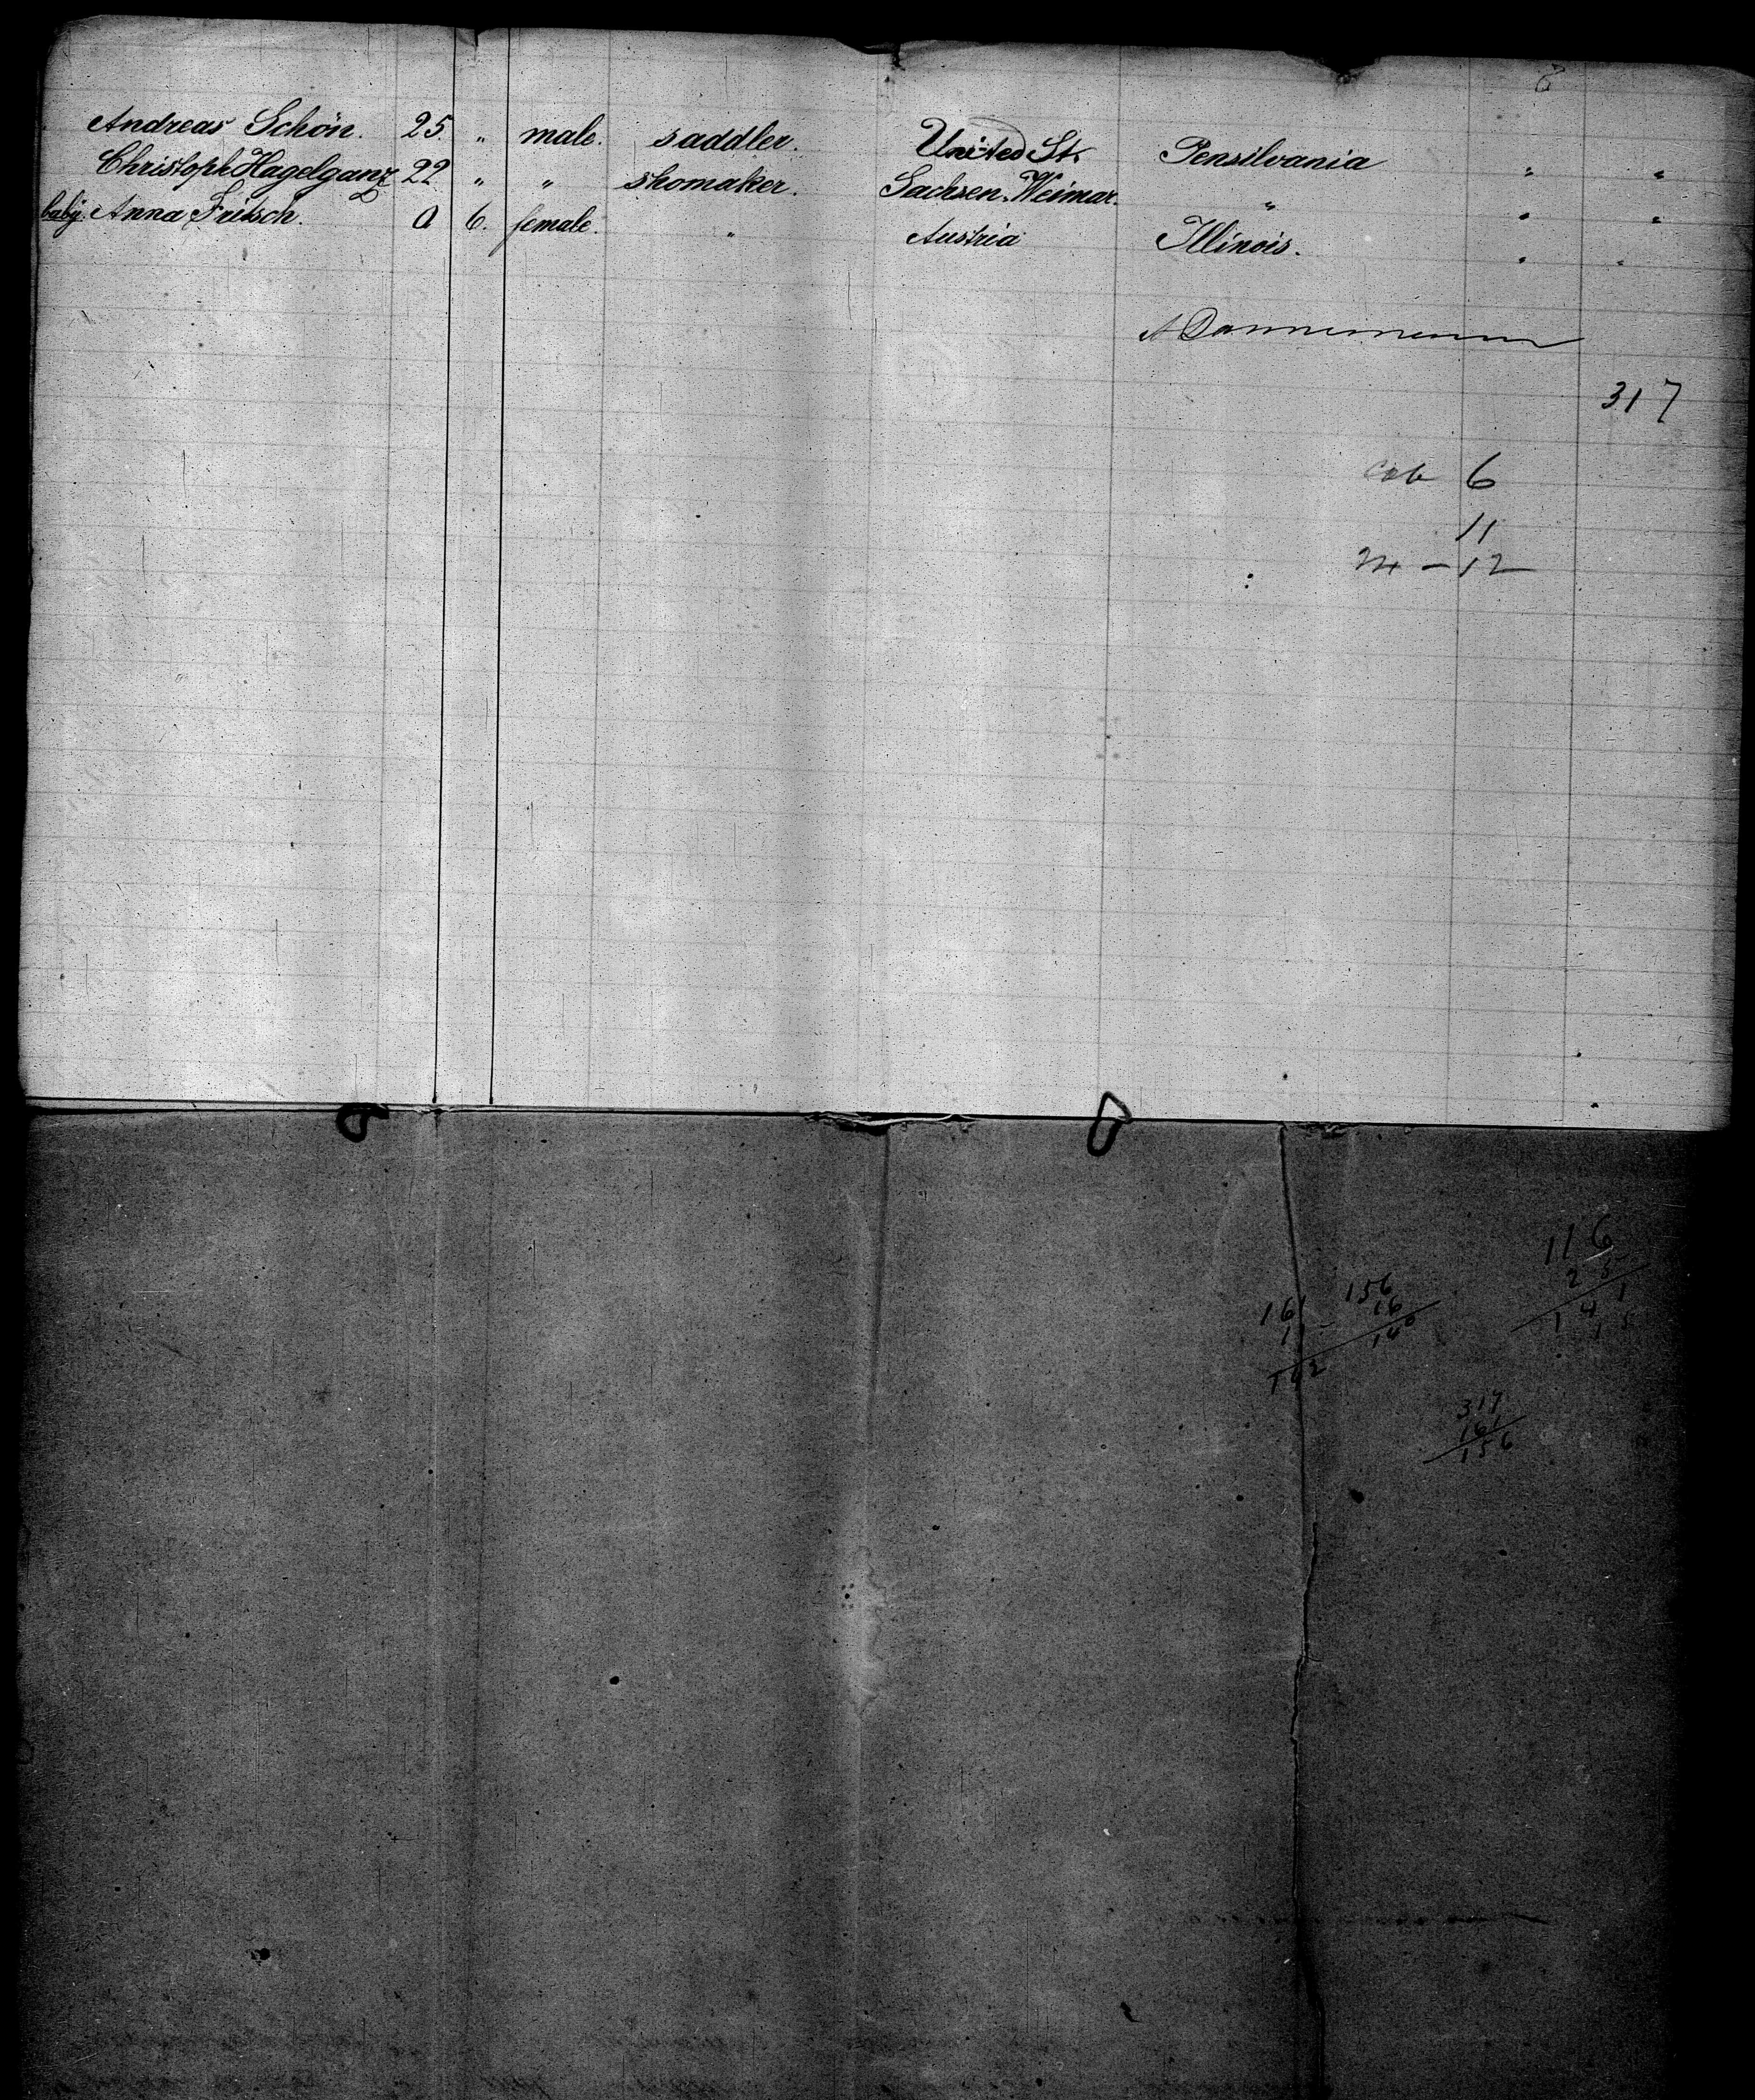 Andreas Schön. 25. " male. saddler. United St. Pensilvania " "
Christoph Hagelganz 22 " " shomaker. Sachsen-Weimar. " " "
baby. Anna Fritsch. 0 6. female. " Austria Illinois. " "
A Dannemann
317
cab 6
11
24 - 12
116
156
161
16
140
317
161
156